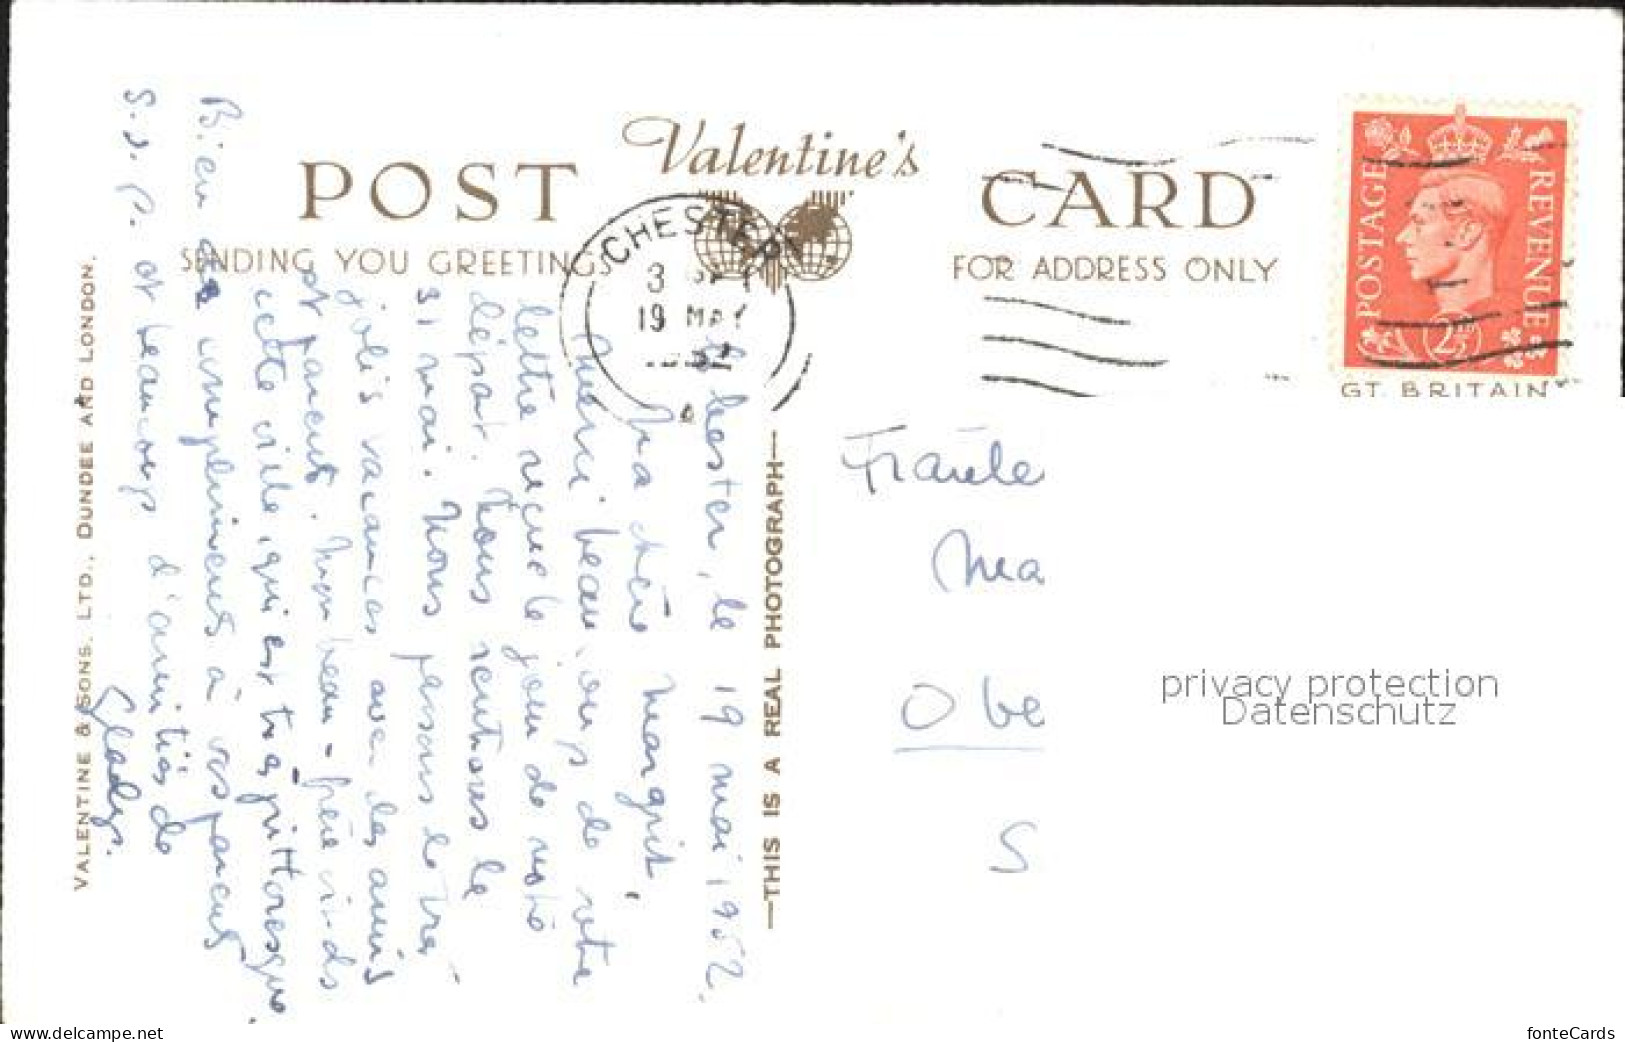 Valentine's
POST CARD
SENDING YOU GREETINGS
FOR ADDRESS ONLY
CHESTER
3
19 MAY
1952
A
POSTAGE
REVENUE
2½D
GT. BRITAIN
Chester, le 19 mai 1952.
Ma chère Margrit,
Merci beaucoup de votre
lettre reçue le jour de notre
départ. Nous rentrons le
31 mai. Nous passons de très
jolis vacances avec des amis
et parents. Mon beau-frère
cette ville, qui est très pittoresque.
Bien des compliments à vos parents
S.J.P. et beaucoup d'amitiés de
Gladys.
VALENTINE & SONS. LTD., DUNDEE AND LONDON.
—THIS IS A REAL PHOTOGRAPH—
Fräule
Ma
Obe
S
privacy protection
Datenschutz
www.delcampe.net
fonteCards